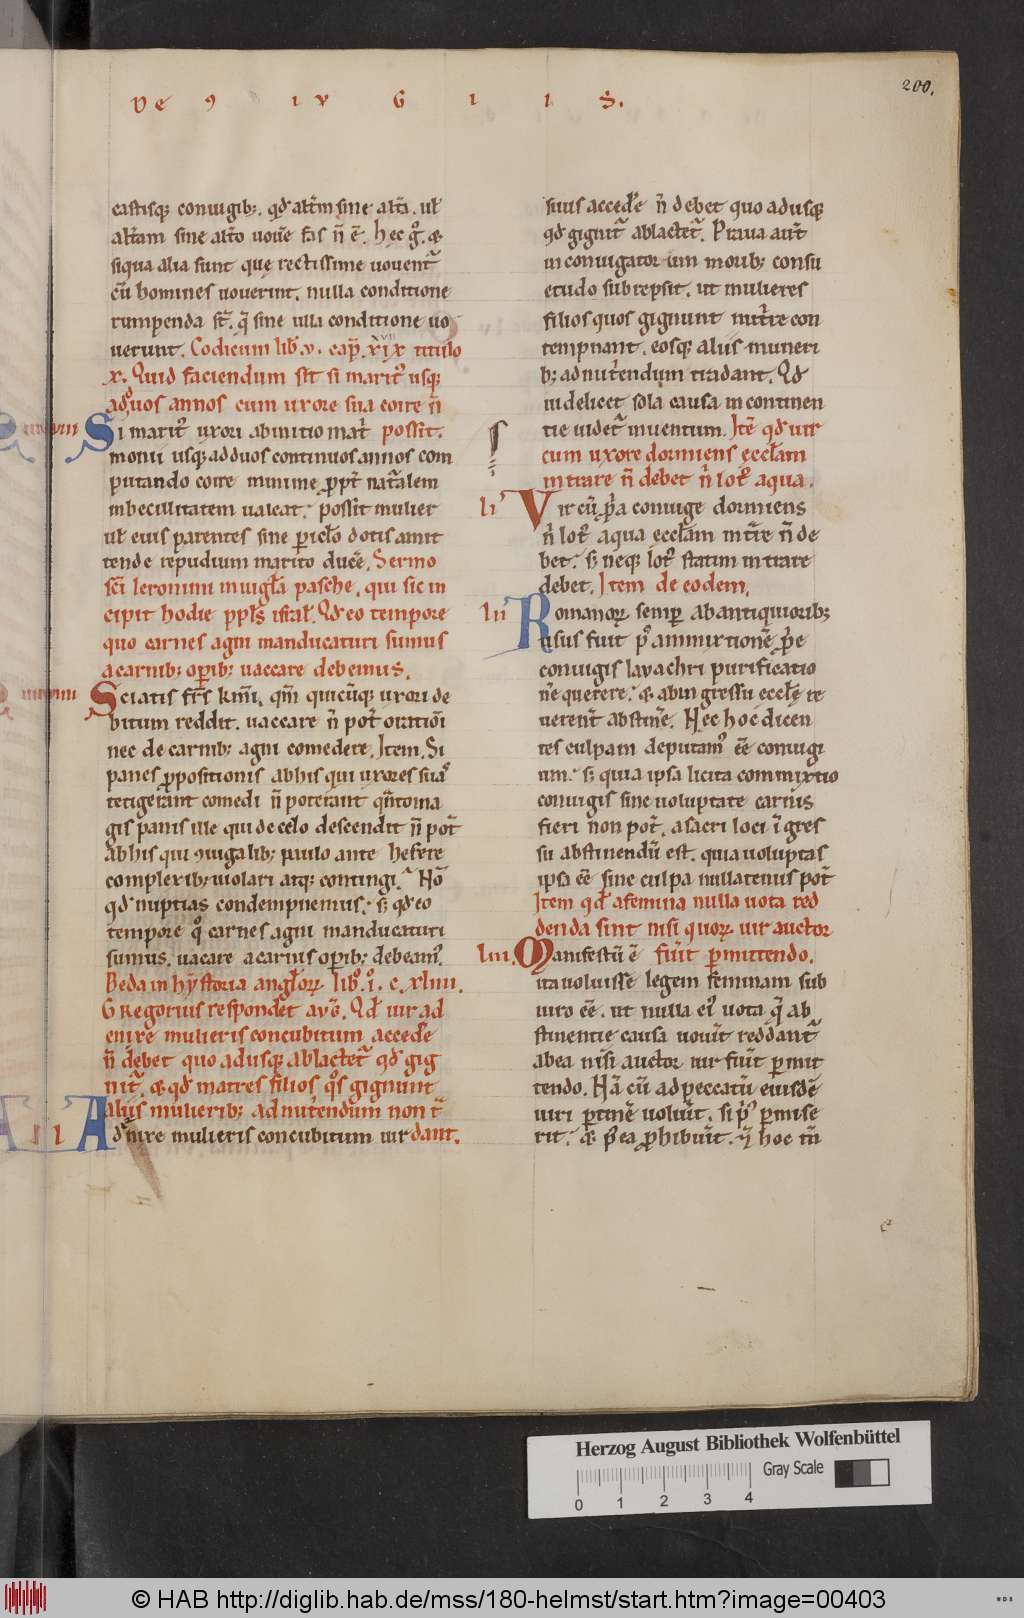 DE ꝯ I V G I I S.
200.
castisq; coniugib;. qđ alt̃m sine alt̃a. uł
alt̃am sine alt̃o uoue fas n̄ ē. hec g̊. &
siqua alia sunt que rectissime uouent᷑
cū homines uouerint. nulla conditione
rumpenda st̄. q̄ sine ulla conditione uo
uerunt. Codicum lib̄. v. cap̄. xix titulo
x. Quid faciendum sit si marit᷒ usq;
ad duos annos cum uxore sua coire n̄
Si marit᷒ uxori ab initio mat̄ possit.
monii usq; ad duos continuos annos com
putando coire minime ꝓpt̄ nat᷑alem
inbecillitatem ualeat. possit mulier
uł eius parentes sine ꝑicło dotis amit
tende repudium marito duc̄e. Sermo
sc̄i Ieronimi in uigła pasche. qui sic in
cipit hodie ppłs isrł. Qđ eo tempore
quo carnes agni manducaturi sumus
a carnib; oꝑib; uaccare debemus.
Sciatis fr̄s km̄i. qm̄ quicūq; uxori de
bitum reddit. uaccare n̄ pot̄ oratiōi
nec de carnib; agni comedere. Item. Si
panes ꝓpositionis ab his qui uxores suas
tetigerant comedi n̄ poterant qn̄to ma
gis panis ille qui de celo descendit n̄ pot̄
ab his qui ꝯiugalib; paulo ante hesere
complexib; uiolari atq; contingi. Nō
qđ nuptias condempnemus. s; qđ eo
tempore q̊ carnes agni manducaturi
sumus. uacare a carnis oꝑib; debeam᷒.
Beda in hystoria angłoꝝ lib̊. i̊. c. xliiii.
GRegorius respondet aug̃. Qđ uir ad
enixe mulieris concubitum accedēe
n̄ debet quo adusq; ablactet᷑ qđ gig
nit᷑. & qđ matres filios q̊s gignunt
aliis mulierib; ad nutriendum non t̃
li Ad enixe mulieris concubitum uir dant.
suus accedēe n̄ debet quo adusq;
qđ gignit᷑ ablactet᷑. Praua aut̄
in coniugatorum morib; consu
etudo subrepsit. ut mulieres
filios quos gignunt nut᷑re con
tempnant. eosq; aliis mulieri
b; ad nut᷑endum tradant. Qđ
uidelicet sola causa incontinen
tie uidet᷑ inuentum. Itē qđ uir
cum uxore dormiens eccłam
intrare n̄ debet n̄ lot᷒ aqua.
li Vir cū ꝓpa coniuge dormiens
n̄ lot᷒ aqua eccłam int᷑re n̄ de
bet. s; neq; lot᷒ statim intrare
debet. Item de eodem.
lii Romanoꝝ semꝑ ab antiquiorib;
usus fuit p᷒ ammixtionē ꝓpe
coniugis lauachri purificatio
nē querere. & ab ingressu eccłe re
uerent̄ abstinēe. Nec hoc dicen
tes culpam deputam᷒ eē coniugi
um. s; quia ipsa licita commixtio
coniugis sine uoluptate carnis
fieri non pot̄. a sacri loci īgres
su abstinendū est. quia uoluptas
ipsa eē sine culpa nullatenus pot̄
Item qđ a femina nulla uota red
denda sint nisi quoꝝ uir auctor
liii. Manifestū ē fuit ꝑmittendo.
ita uoluisse legem feminam sub
uiro eē. ut nulla ei᷒ uota q̄ ab
stinentie causa uouit reddant᷑
ab ea nisi auctor uir fuit ꝑmit
tendo. Nā cū ad peccatū eiusdē
uiri ꝑtinē uoluit. si p᷒ ꝑmise
rit. & p᷒ea ꝓhibuit. in hoc tn̄
Herzog August Bibliothek Wolfenbüttel
Gray Scale
0 1 2 3 4
© HAB http://diglib.hab.de/mss/180-helmst/start.htm?image=00403